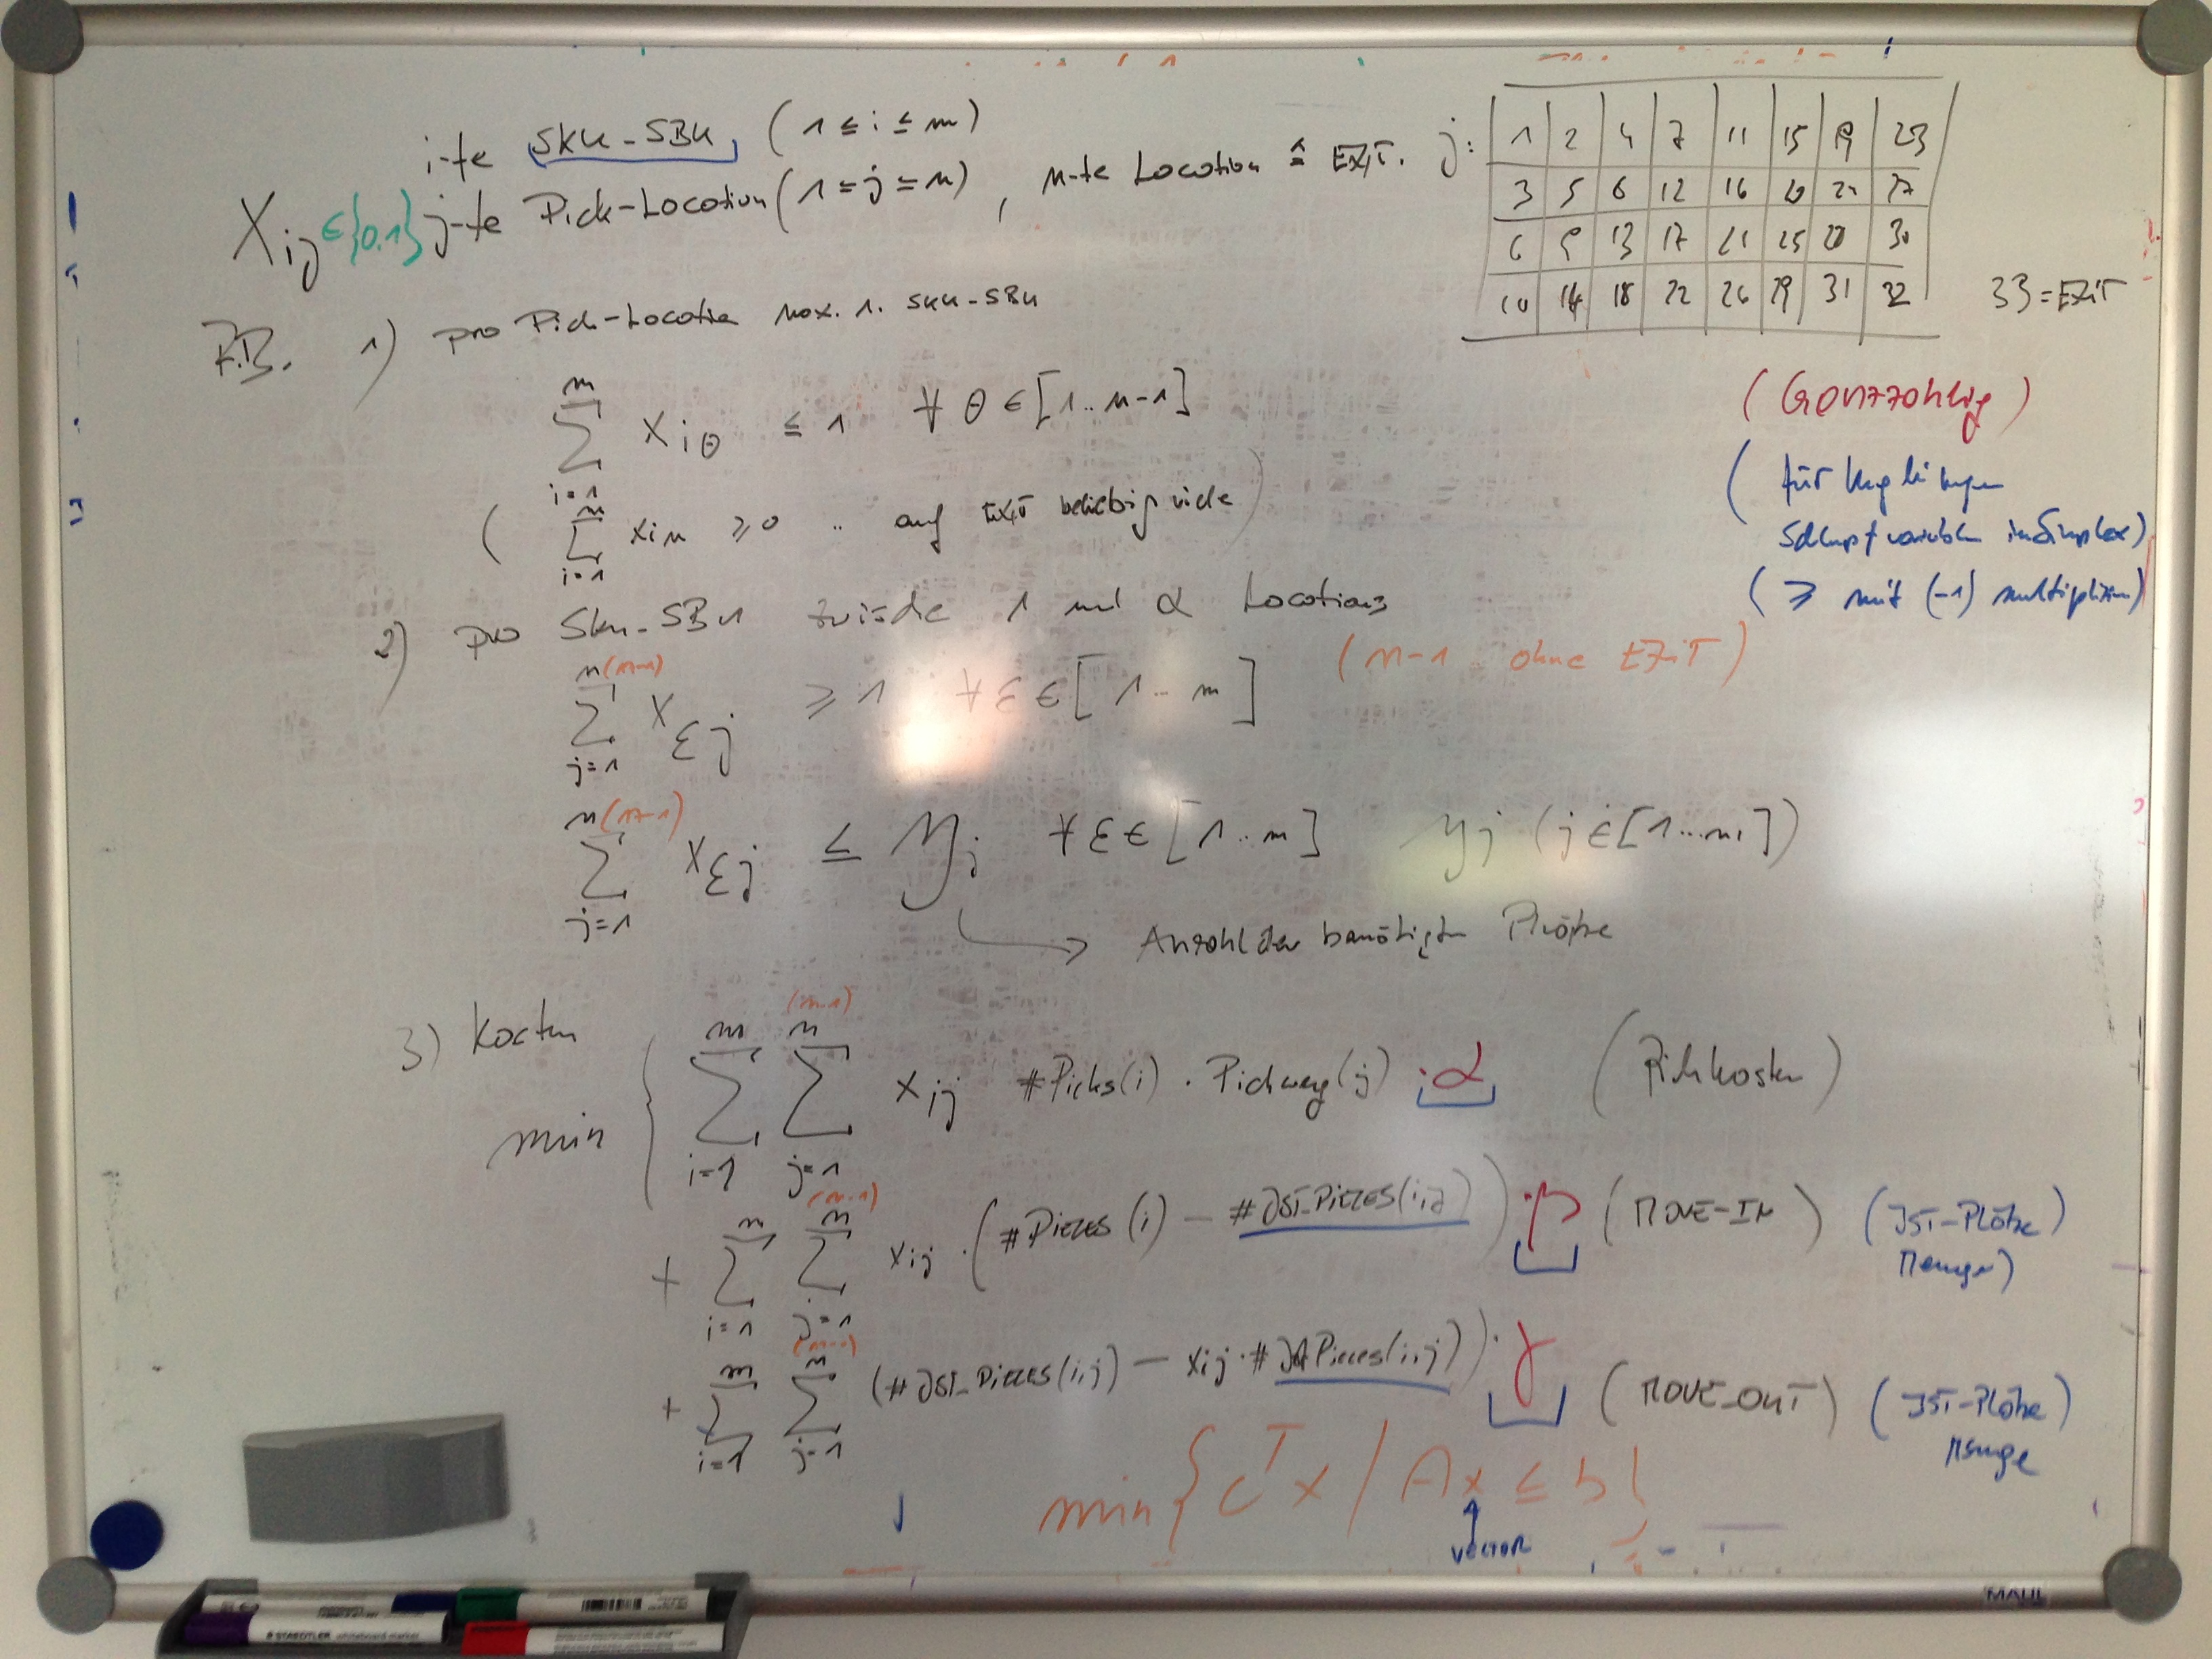 i-te SKU-SBU (1 ≤ i ≤ m)
X_ij ∈{0,1} j-te Pick-Location (1 ≤ j ≤ n), n-te Location ≙ EXIT.
j: 1 2 4 7 11 15 19 23
3 5 8 12 16 20 24 27
6 9 13 17 21 25 28 30
10 14 18 22 26 29 31 32
33 = EXIT
1) pro Pick-Location max. 1. SKU-SBU
m ∑ i=1 x_iθ ≤ 1 ∀ θ ∈ [1..n-1]
( m ∑ i=1 x_in ≥ 0 .. auf EXIT beliebig viele )
(Ganzzahlig)
( für
Schlupfvariablen in Simplex)
( ≥ mit (-1) multiplizieren)
2) pro SKU-SBU zwischen 1 und α Locations
n (n-1) ∑ j=1 x_εj ≥ 1 ∀ ε ∈ [1..m]
(n-1 ohne EXIT)
n (n-1) ∑ j=1 x_εj ≤ y_j ∀ ε ∈ [1..m] y_j (j ∈ [1...m])
→ Anzahl der benötigten Plätze
3) Kosten
min { m ∑ i=1 n (n-1) ∑ j=1 x_ij #Picks(i) · Pickweg(j) · α (Pickkosten)
+ m ∑ i=1 n (n-1) ∑ j=1 x_ij · (#Pieces(i) - #IST_Pieces(i,j)) · β (MOVE-IN) (IST-Plätze
Menge)
+ m ∑ i=1 n (n-1) ∑ j=1 (#IST_Pieces(i,j) - x_ij · #IST Pieces(i,j)) · γ (MOVE_OUT) (IST-Plätze)
Menge
min { c^T x / Ax ≤ b }
VECTOR
STAEDTLER whiteboard marker
MAUL